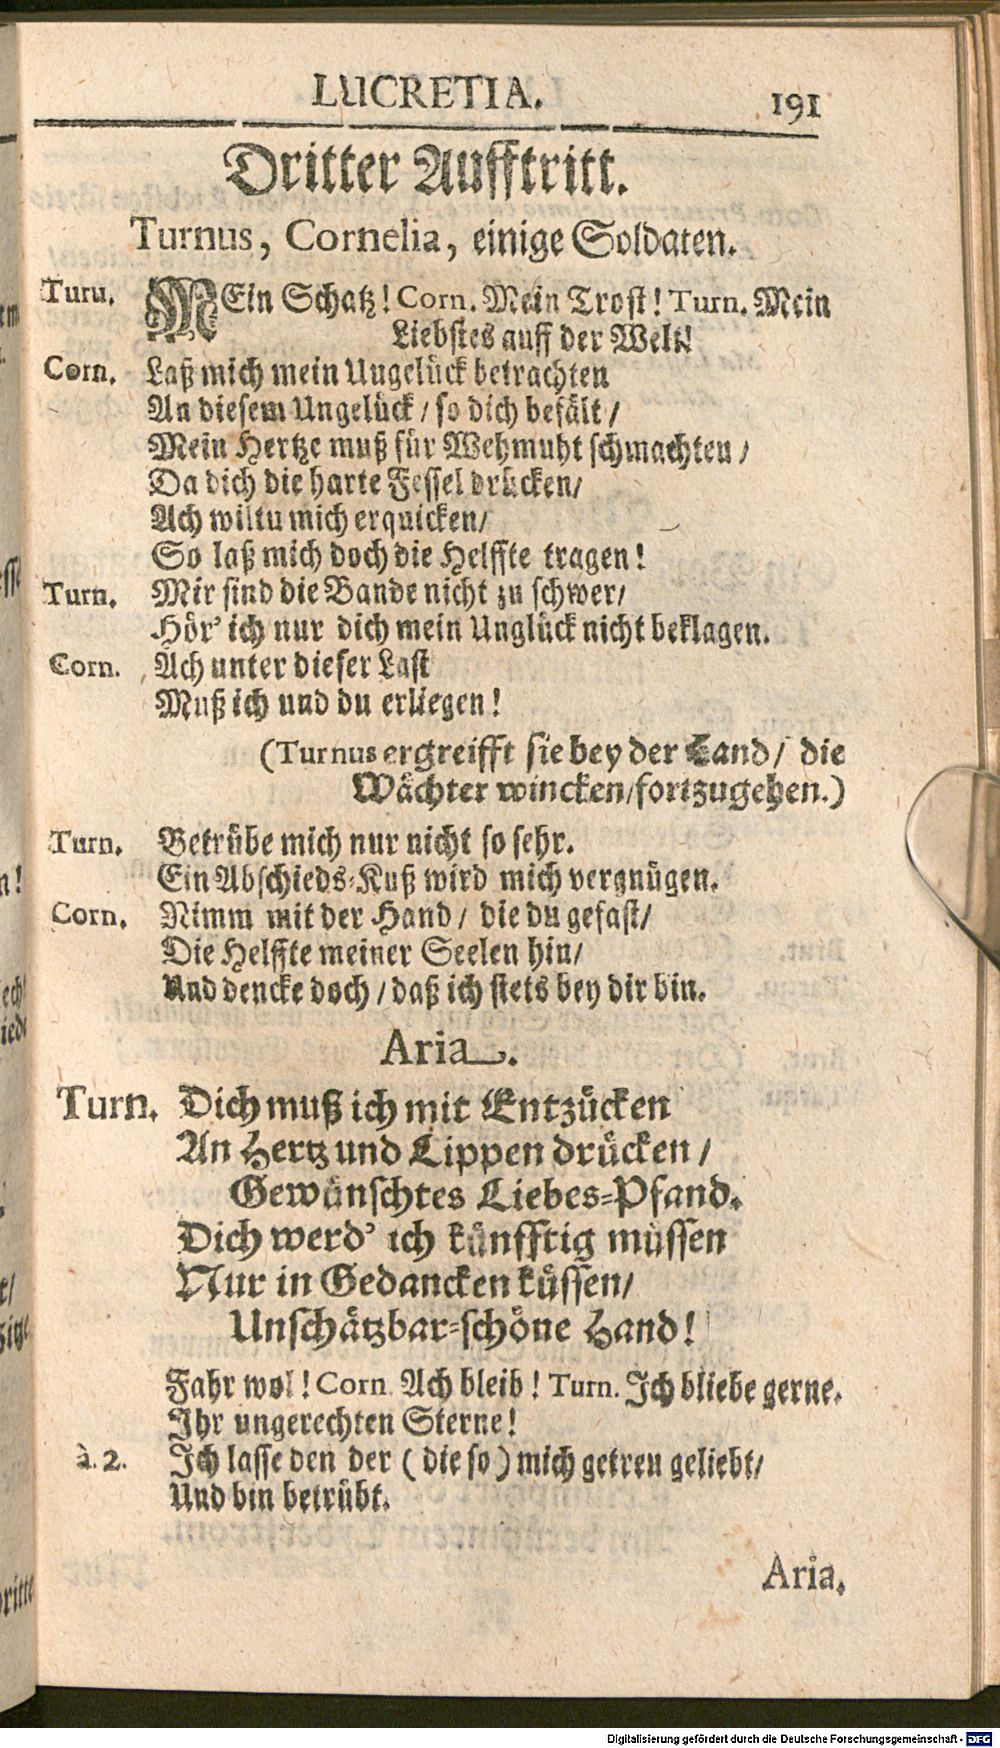 LUCRETIA. 191
Dritter Aufftritt.
Turnus, Cornelia, einige Soldaten.
Turu. MEin Schatz! Corn. Mein Trost! Turn. Mein
Liebstes auff der Welt!
Corn. Laß mich mein Ungelück betrachten
An diesem Ungelück / so dich befält /
Mein Hertze muß für Wehmuht schmachten /
Da dich die harte Fessel drücken/
Ach wiltu mich erquicken/
So laß mich doch die Helffte tragen!
Turn. Mir sind die Bande nicht zu schwer/
Hör' ich nur dich mein Unglück nicht beklagen.
Corn. Ach unter dieser Last
Muß ich und du erliegen!
(Turnus ergreifft sie bey der Hand / die
Wächter wincken/fortzugehen.)
Turn. Betrübe mich nur nicht so sehr.
Ein Abschieds-Kuß wird mich vergnügen.
Corn. Nimm mit der Hand / die du gefast/
Die Helffte meiner Seelen hin/
Und dencke doch / daß ich stets bey dir bin.
Aria.
Turn. Dich muß ich mit Entzücken
An Hertz und Lippen drücken /
Gewünschtes Liebes-Pfand.
Dich werd' ich künfftig müssen
Nur in Gedancken küssen/
Unschätzbar-schöne Hand!
Fahr wol! Corn. Ach bleib! Turn. Ich bliebe gerne.
Ihr ungerechten Sterne!
à. 2. Ich lasse den der ( die so ) mich getreu geliebt/
Und bin betrübt.
Aria.
Digitalisierung gefördert durch die Deutsche Forschungsgemeinschaft - DFG